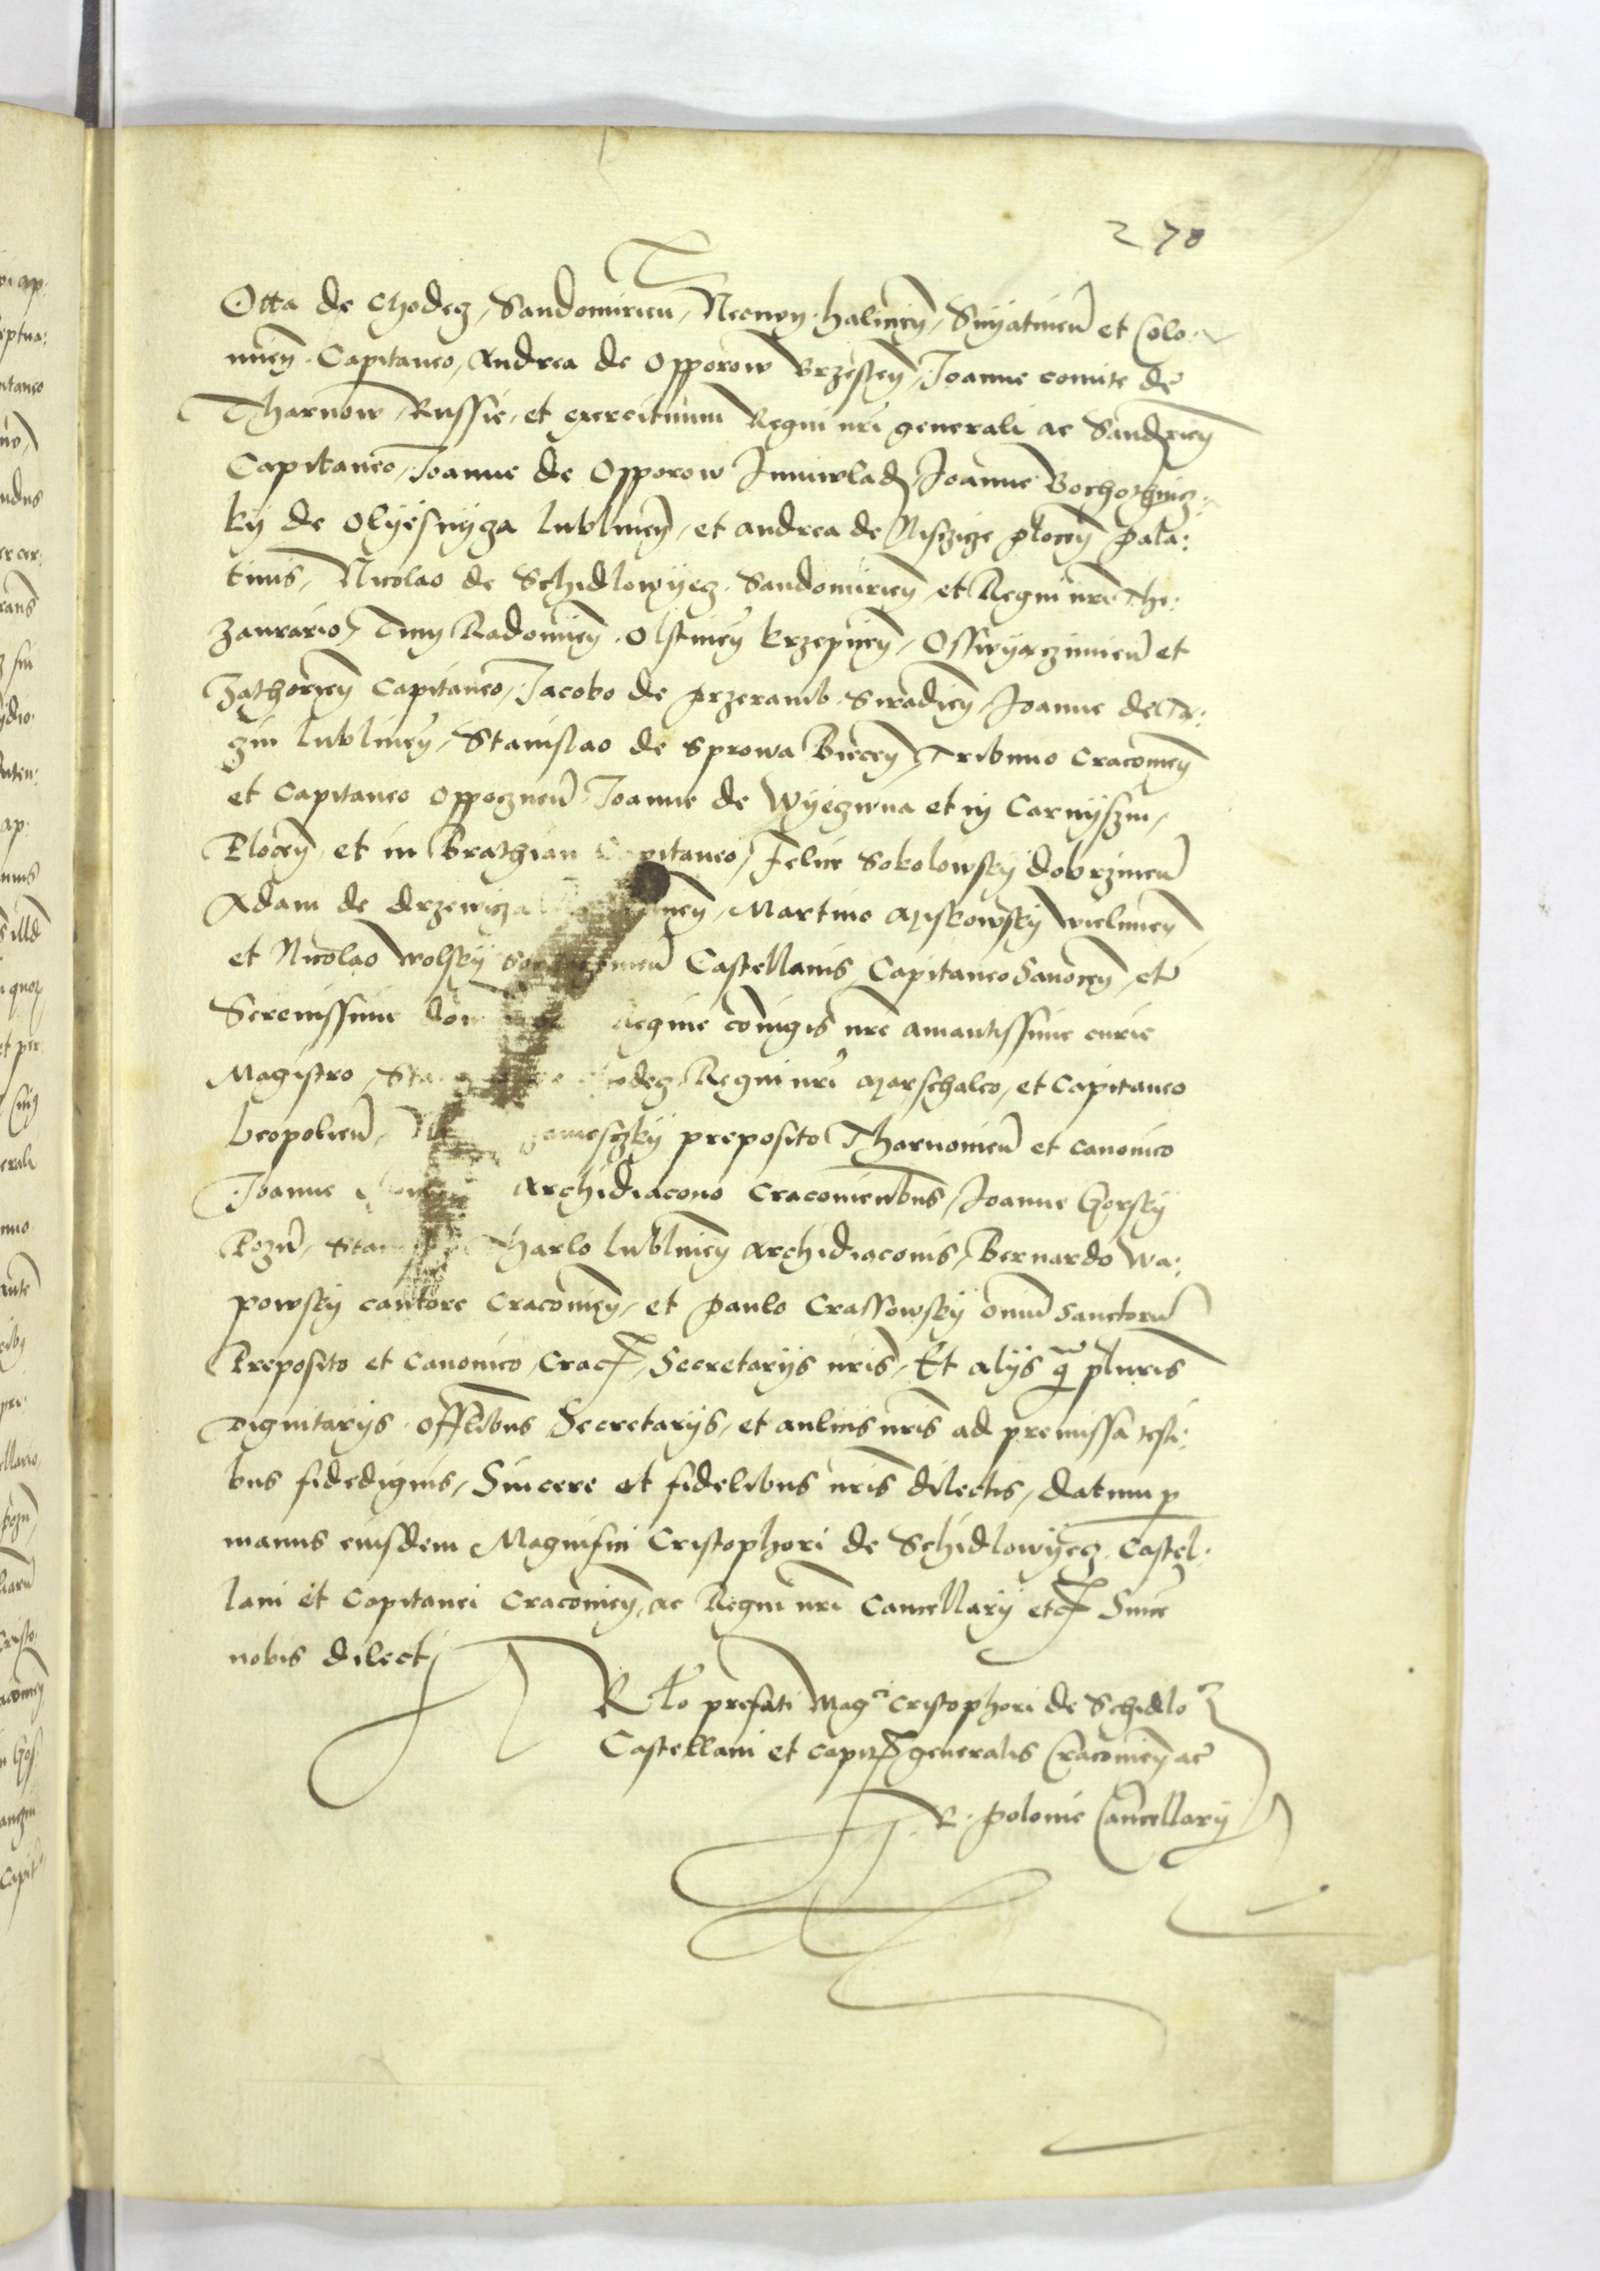 270
Otta de Chodecz, Sandomirien, Necnon halicień, Snyatinen et Colo-
mień Capitaneo, Andrea de Opporow Brzesteń, Joanne comite de
Tharnow, Russie, et exercituum Regni nri generali ac Sandecień
Capitaneo, Joanne de Opporow Juniwlad, Joanne Bochothnicz:
ky de Olyesnycza lublineń, et andrea de Nisczicze ploceń pala:
tinis, Nicolao de Schidlowyecz Sandomirień et Regni nri The:
zaurario, Tum Radomień Olstineń krzepiceń, Osswyaczimień et
Zathorień Capitaneo, Jacobo de przeramb Siradień, Joanne de Ta:
czin lublineń, Stanislao de Sprowa Bieceń, Tribuno Cracovień
et Capitaneo Oppocznen Joanne de Wyeczwna et in Carnyszin,
Ploceń et in Brathian Capitaneo, Felice Sokolowsky dobrzinen
Adam de drzewicza Martino Myskowsky wieluneń
et Nicolao Wolsky Castellanis Capitaneo Sanoceń, et
Serenissime Regine coniugis nre amantissime curie
Magistro, Regni nri Marschalco, et Capitaneo
leopolien, preposito Tharnovien et canonico
Joanne Archidiacono Cracovienbus, Joanne Gorsky
Pozn, Tharlo lublineń Archidiaconis, Bernardo Wa:
powsky cantore Cracovień, et paulo Crassowsky oniu Sanctoru
Preposito et Canonico, Crac, Secretarys nris, Et alys q pluris
Dignitarys offlibus Secretarys, et aulicis nris ad premissa testi:
bus fidedignis, Sincere et fidelibus nris dilectis, datum p
manus eiusdem Magnifici Cristophori de Schidlowyecz Castel-
lani et Capitanei Cracovień, ac Regni nri Cancellary etc Since
nobis dilecti
Rlo prefati Magci Cristophori de Schidlo
Castellani et capit generalis Cracovień ac
R. polonie Cancellary